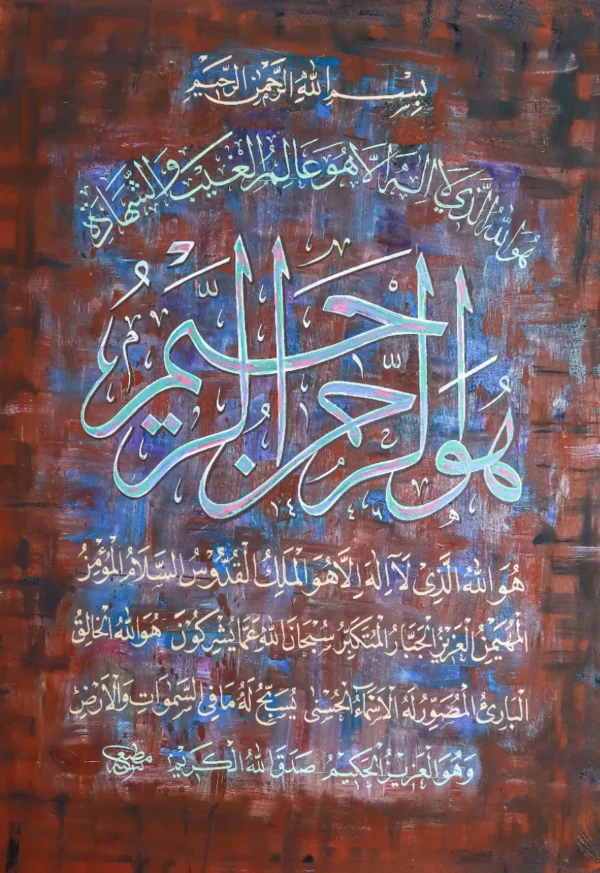 بِسْمِ اللهِ الرَّحْمٰنِ الرَّحِيْمِ
هُوَ اللهُ الَّذِي لَا إِلٰهَ إِلَّا هُوَ عَالِمُ الْغَيْبِ وَالشَّهَادَةِ
هُوَ الرَّحْمٰنُ الرَّحِيْمُ
هُوَ اللهُ الَّذِيْ لَآ اِلٰهَ اِلَّا هُوَ الْمَلِكُ الْقُدُّوْسُ السَّلَامُ الْمُؤْمِنُ
الْمُهَيْمِنُ الْعَزِيْزُ الْجَبَّارُ الْمُتَكَبِّرُ سُبْحَانَ اللهِ عَمَّا يُشْرِكُوْنَ هُوَ اللهُ الْخَالِقُ
الْبَارِئُ الْمُصَوِّرُ لَهُ الْاَسْمَآءُ الْحُسْنٰى يُسَبِّحُ لَهُ مَا فِى السَّمٰوَاتِ وَالْاَرْضِ
وَهُوَ الْعَزِيْزُ الْحَكِيْمُ صَدَقَ اللهُ الْكَرِيْمُ